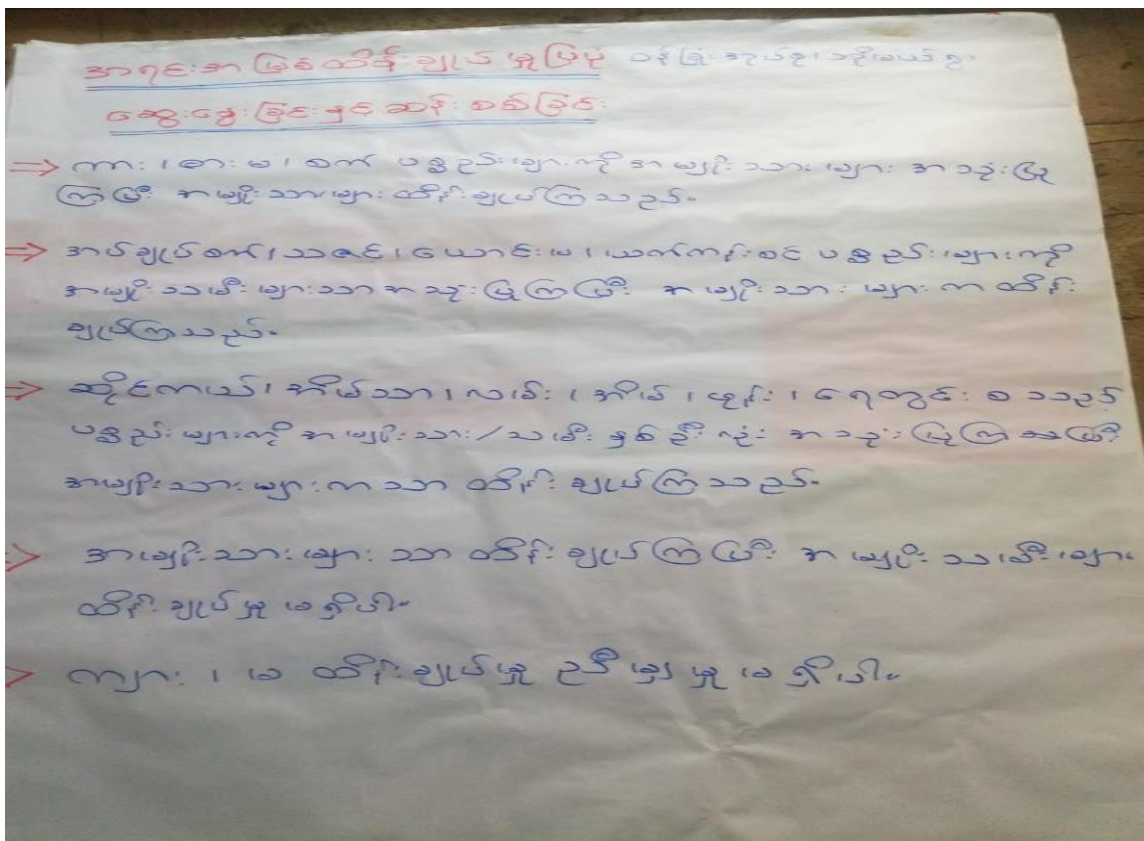 အရင်းအမြစ်ထိန်းချုပ်မှုပြပုံ
ဆွေးနွေးခြင်းနှင့်ဆန်းစစ်ခြင်း
⇒ ကား၊ ဓားမ၊ စက် ပစ္စည်းများကို အမျိုးသားများ အသုံးပြု
ကြပြီး အမျိုးသားများ ထိန်းချုပ်ကြသည်။
⇒ အပ်ချုပ်စက်၊ သစင်၊ ယောင်းမ၊ ယက်ကန်းစင် ပစ္စည်းများကို
အမျိုးသမီးများသာ အသုံးပြုကြပြီး အမျိုးသားများက ထိန်း
ချုပ်ကြသည်။
⇒ ဆိုင်ကယ်၊ အိမ်သာ၊ လမ်း၊ အိမ်၊ ဖုန်း၊ ရေတွင်း စသည့်
ပစ္စည်းများကို အမျိုးသား/သမီး နှစ်ဦးလုံး အသုံးပြုကြပြီး
အမျိုးသားများကသာ ထိန်းချုပ်ကြသည်။
⇒ အမျိုးသားများသာ ထိန်းချုပ်ကြပြီး အမျိုးသမီးများ
ထိန်းချုပ်မှု မရှိပါ။
⇒ ကျား၊ မ ထိန်းချုပ်မှု ညီမျှမှု မရှိပါ။